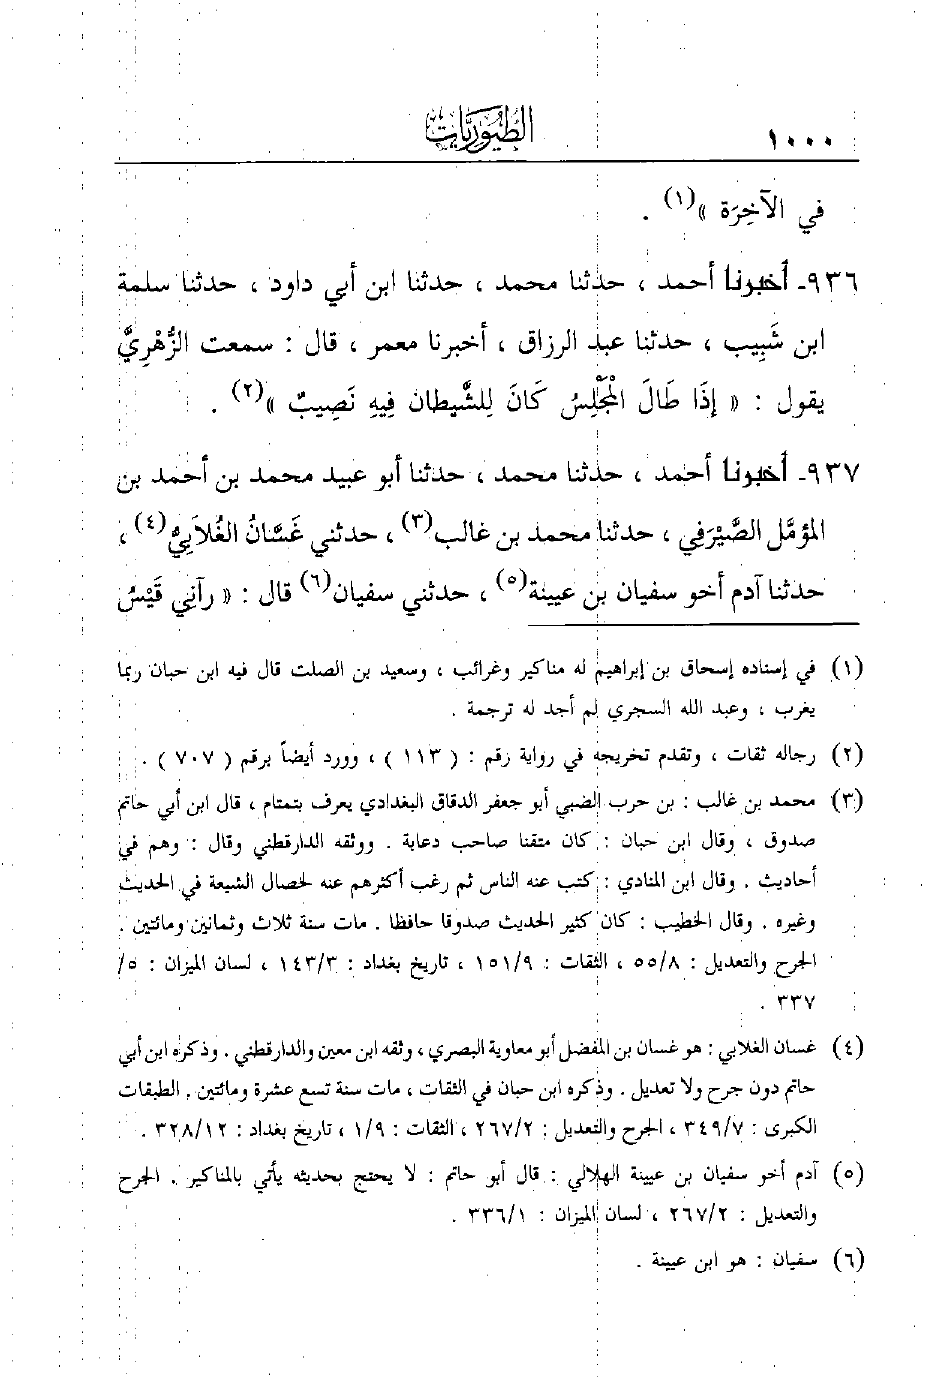 ١٠٠٠
الطيوريات
في الآخِرَة »(١) .
٩٣٦- أخبرنا أحمد ، حدثنا محمد ، حدثنا ابن أبي داود ، حدثنا سلمة
ابن شَبِيب ، حدثنا عبد الرزاق ، أخبرنا معمر ، قال : سمعت الزُّهْرِيَّ
يقول : « إِذَا طَالَ المَجْلِسُ كَانَ لِلشَّيطان فِيهِ نَصِيبٌ »(٢) .
٩٣٧- أخبرنا أحمد ، حدثنا محمد ، حدثنا أبو عبيد محمد بن أحمد بن
المؤمَّل الصَّيْرَفِي ، حدثنا محمد بن غالب(٣) ، حدثني غَسَّانُ الغُلاَبِيُّ(٤) ،
حدثنا آدم أخو سفيان بن عيينة(٥) ، حدثني سفيان(٦) قال : « رآنِي قَيْسُ
(١) في إسناده إسحاق بن إبراهيم له مناكير وغرائب ، وسعيد بن الصلت قال فيه ابن حبان ربما
يغرب ، وعبد الله السجري لم أجد له ترجمة .
(٢) رجاله ثقات ، وتقدم تخريجه في رواية رقم : ( ١١٣ ) ، وورد أيضاً برقم ( ٧٠٧ ) .
(٣) محمد بن غالب : بن حرب الضبي أبو جعفر الدقاق البغدادي يعرف بتمتام ، قال ابن أبي حاتم
صدوق ، وقال ابن حبان : كان متقنا صاحب دعابة . ووثقه الدارقطني وقال : وهم في
أحاديث . وقال ابن المنادي : كتب عنه الناس ثم رغب أكثرهم عنه لخصال الشيعة في الحديث
وغيره . وقال الخطيب : كان كثير الحديث صدوقا حافظا . مات سنة ثلاث وثمانين ومائتين .
الجرح والتعديل : ٥٥/٨ ، الثقات : ١٥١/٩ ، تاريخ بغداد : ١٤٣/٣ ، لسان الميزان : ٥/
٣٣٧ .
(٤) غسان الغلابي : هو غسان بن المفضل أبو معاوية البصري ، وثقه ابن معين والدارقطني . وذكره ابن أبي
حاتم دون جرح ولا تعديل . وذكره ابن حبان في الثقات ، مات سنة تسع عشرة ومائتين . الطبقات
الكبرى : ٣٤٩/٧ ، الجرح والتعديل : ٢٦٧/٢ ، الثقات : ١/٩ ، تاريخ بغداد : ٣٢٨/١٢ .
(٥) آدم أخو سفيان بن عيينة الهلالي : قال أبو حاتم : لا يحتج بحديثه يأتي بالمناكير . الجرح
والتعديل : ٢٦٧/٢ ، لسان الميزان : ٣٣٦/١ .
(٦) سفيان : هو ابن عيينة .